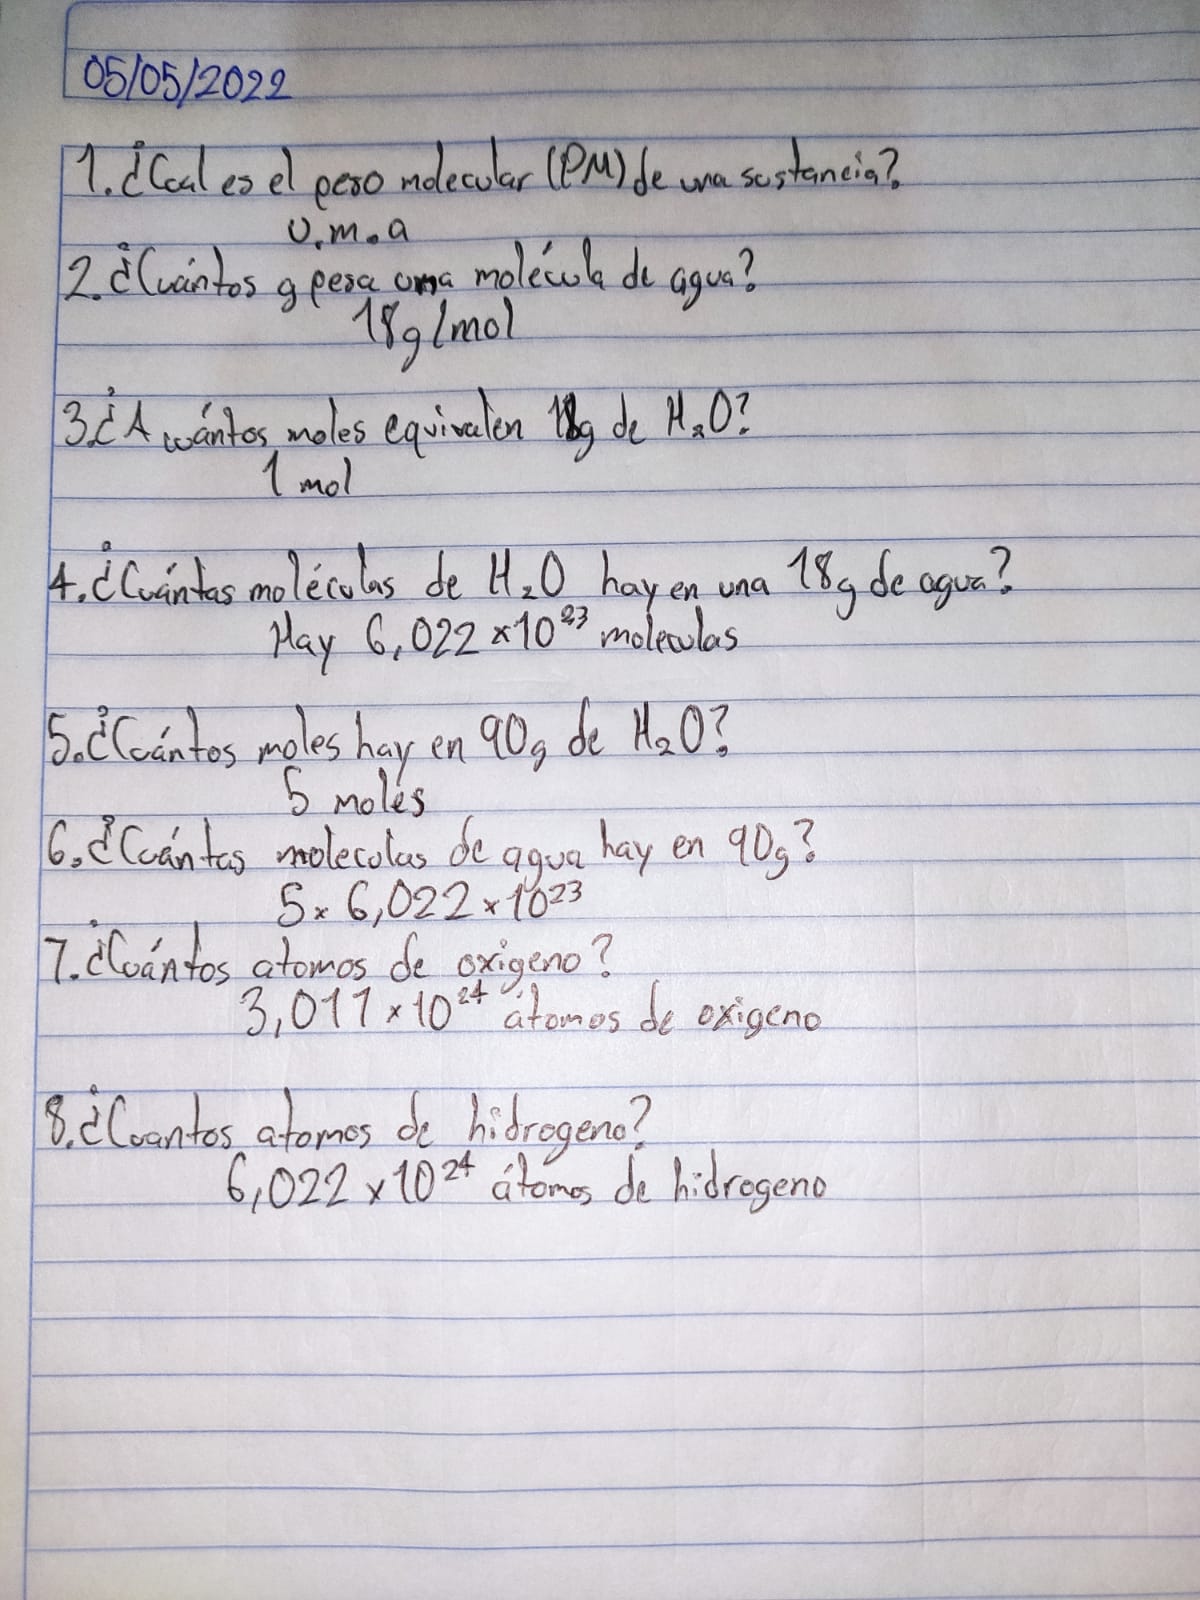 05/05/2022
1. ¿Cual es el peso molecular (PM) de una sustancia?
U.m.a
2. ¿Cuántos g pesa una molécula de agua?
18g/mol
3. ¿A cuántos moles equivalen 18g de H₂O?
1 mol
4. ¿Cuántas moléculas de H₂O hay en una 18g de agua?
Hay 6,022 x 10²³ moleculas
5. ¿Cuántos moles hay en 90g de H₂O?
5 moles
6. ¿Cuántas moleculas de agua hay en 90g?
5 x 6,022 x 10²³
7. ¿Cuántos atomos de oxigeno?
3,011 x 10²⁴ átomos de oxigeno
8. ¿Cuantos atomos de hidrogeno?
6,022 x 10²⁴ átomos de hidrogeno